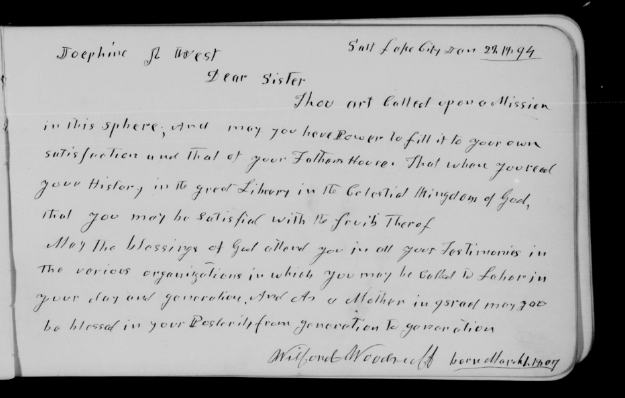 Josephine R West Salt Lake City Jan 28. 1894
Dear Sister
Thou art Called upon a Mission
in this sphere; And may you have Power to fill it to your own
satisfaction and that of your Fathers House. That when you read
your History in the great Library in the Celestial Kingdom of God,
that you may be Satisfied with the fruits Therof
May the blessings of God attend you in all your Testimonies in
the various organizations in which you may be Called to Labor in
your day and generation, And As a Mother in Israel may you
be blessed in your Posterity from generation to generation
Wilford Woodruff born March 1. 1807